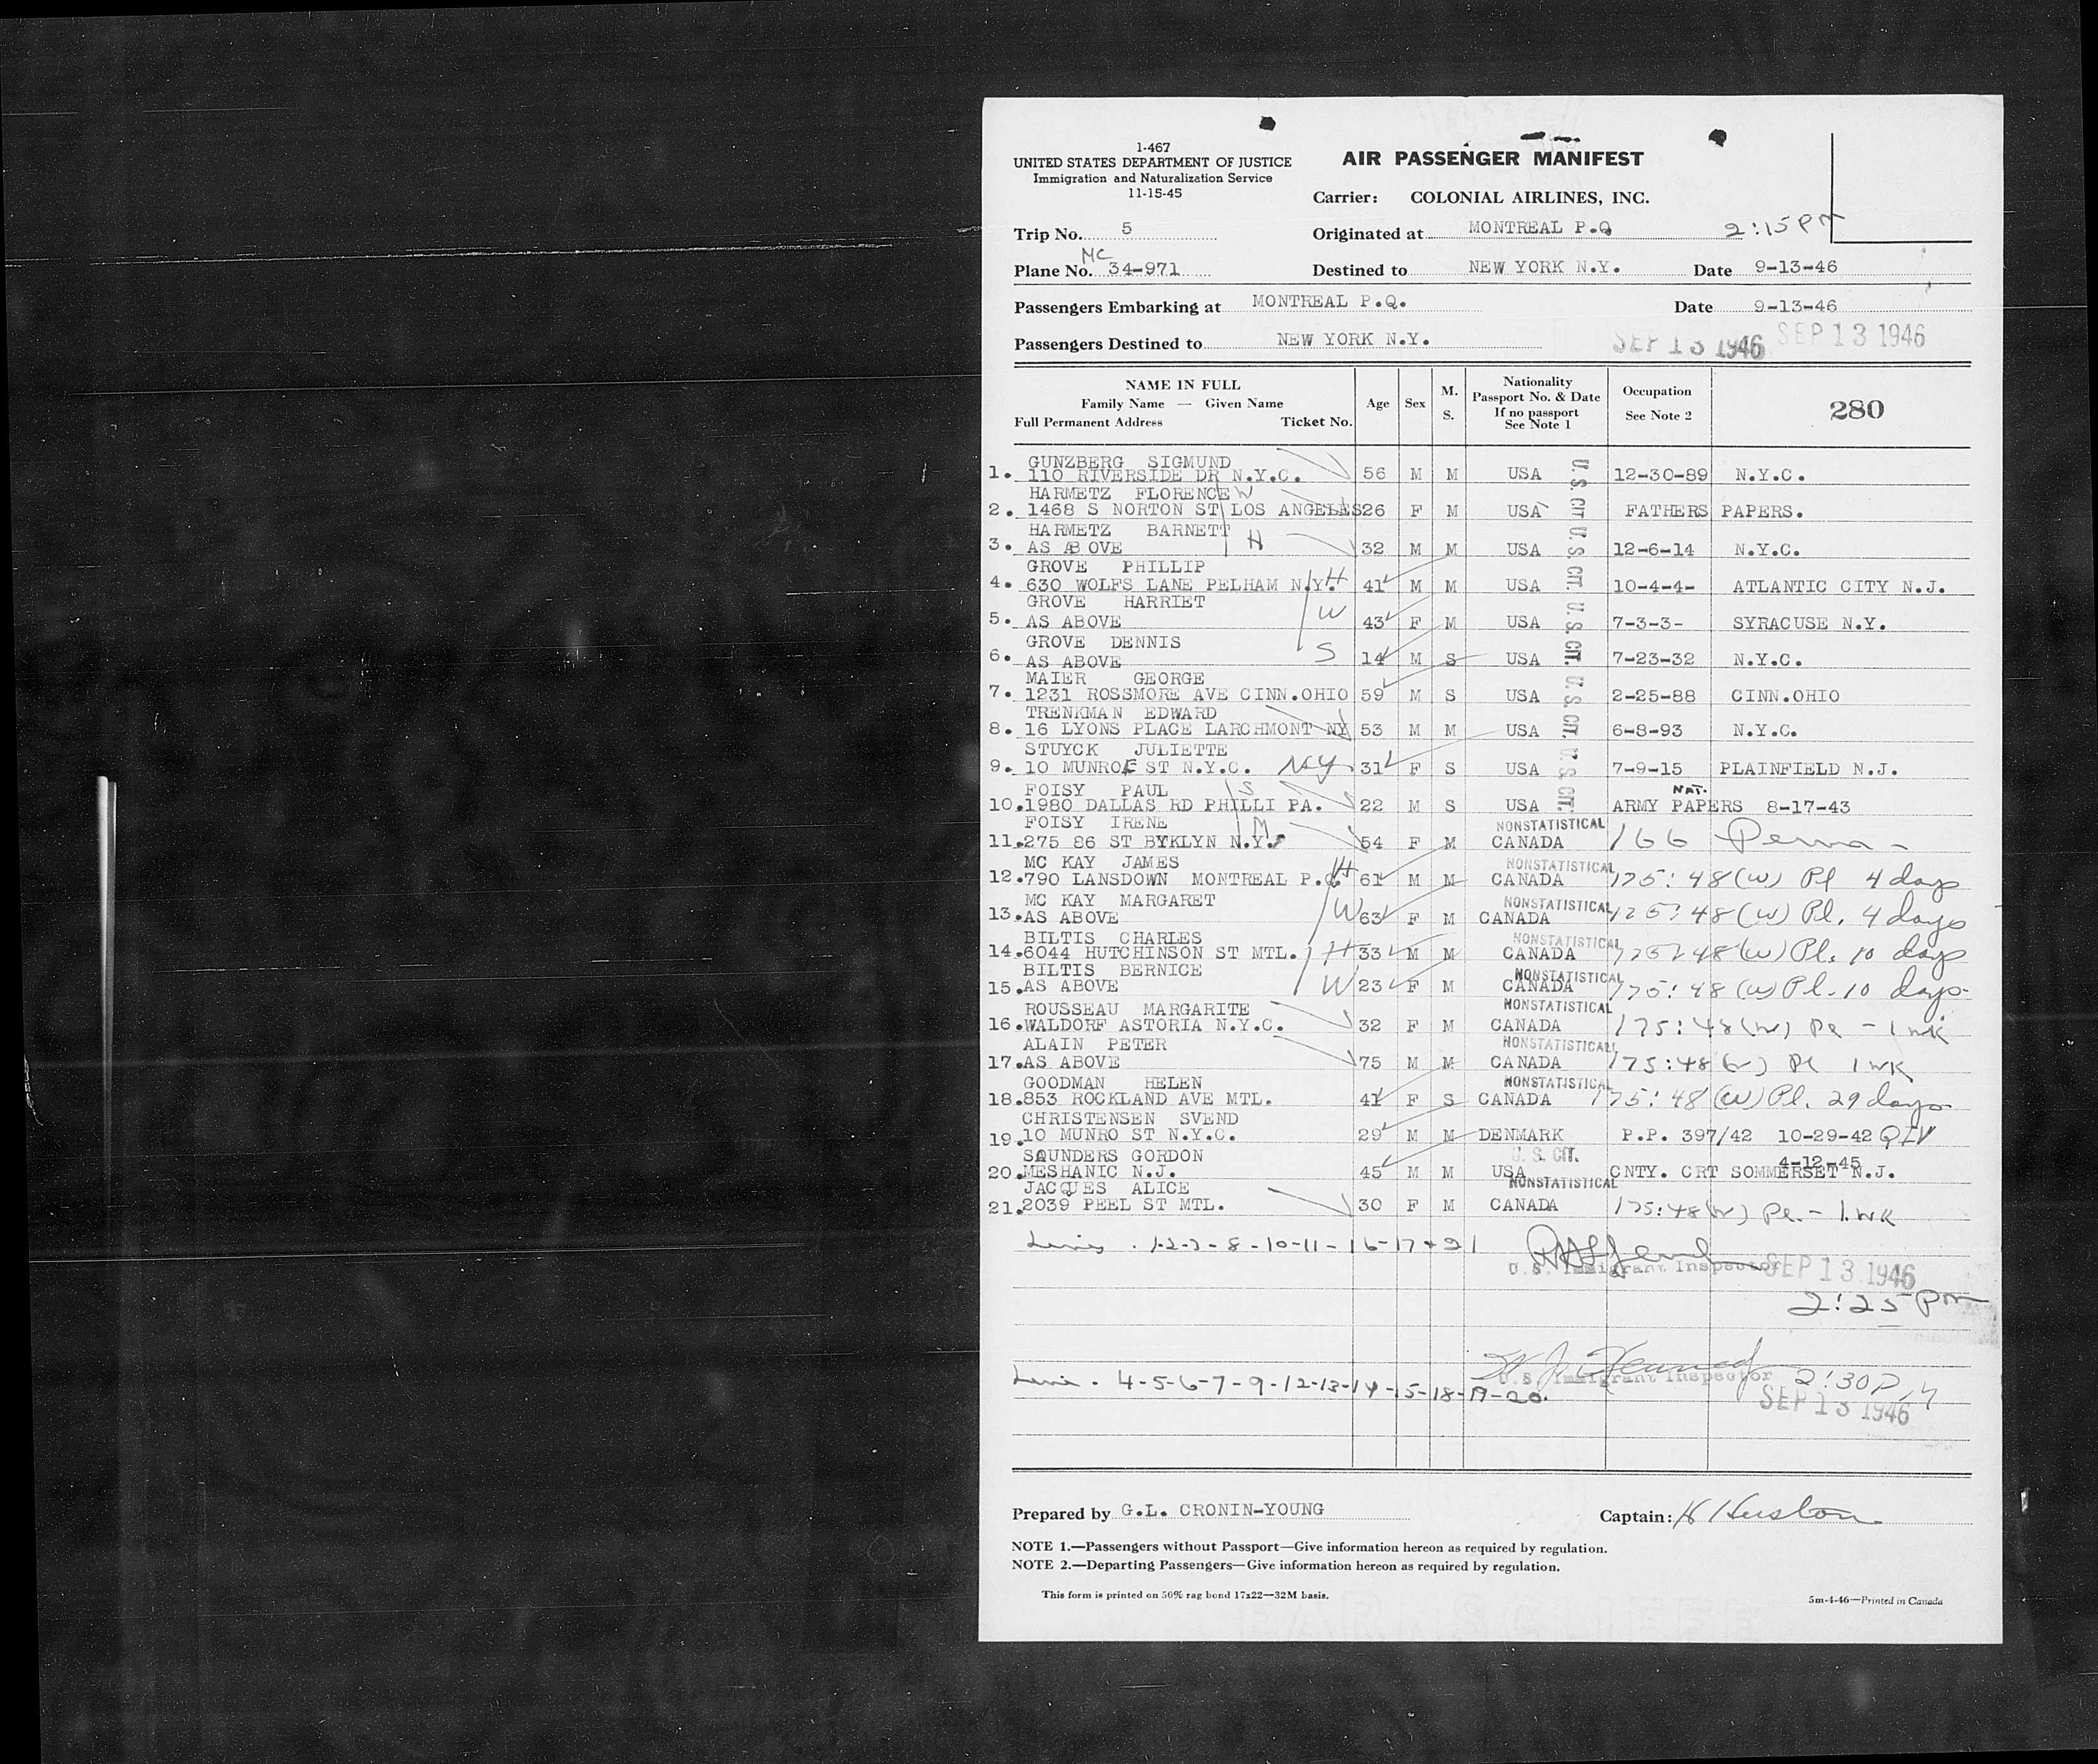 1-467
UNITED STATES DEPARTMENT OF JUSTICE
Immigration and Naturalization Service
11-15-45
AIR PASSENGER MANIFEST
Carrier: COLONIAL AIRLINES, INC.
Trip No. 5
Originated at MONTREAL P.Q 2:15 PM
MC
Plane No. 34-971
Destined to NEW YORK N.Y. Date 9-13-46
Passengers Embarking at MONTREAL P.Q. Date 9-13-46
Passengers Destined to NEW YORK N.Y. SEP 13 1946 SEP 13 1946
NAME IN FULL
Family Name — Given Name
Full Permanent Address Ticket No.
Age
Sex
M.
S.
Nationality
Passport No. & Date
If no passport
See Note 1
Occupation
See Note 2
280
GUNZBERG SIGMUND
1. 110 RIVERSIDE DR N.Y.C. 56 M M USA U.S. CIT 12-30-89 N.Y.C.
HARMETZ FLORENCE W
2. 1468 S NORTON ST LOS ANGELES 26 F M USA U.S. CIT. FATHERS PAPERS.
HARMETZ BARNETT H
3. AS ABOVE 32 M M USA U.S. CIT. 12-6-14 N.Y.C.
GROVE PHILLIP
4. 630 WOLFS LANE PELHAM N.Y. H 41 M M USA 10-4-4- ATLANTIC CITY N.J.
GROVE HARRIET W
5. AS ABOVE 43 F M USA U.S. CIT. 7-3-3- SYRACUSE N.Y.
GROVE DENNIS S
6. AS ABOVE 14 M S USA 7-23-32 N.Y.C.
MAIER GEORGE
7. 1231 ROSSMORE AVE CINN.OHIO 59 M S USA U.S. CIT. 2-25-88 CINN.OHIO
TRENKMAN EDWARD
8. 16 LYONS PLACE LARCHMONT NY 53 M M USA 6-8-93 N.Y.C.
STUYCK JULIETTE
9. 10 MUNROE ST N.Y.C. NY 31 F S USA U.S. CIT. 7-9-15 PLAINFIELD N.J.
FOISY PAUL S NAT.
10. 1980 DALLAS RD PHILLI PA. 22 M S USA ARMY PAPERS 8-17-43
FOISY IRENE M NONSTATISTICAL
11. 275 86 ST BYKLYN N.Y. 54 F M CANADA 166 Perm -
MC KAY JAMES NONSTATISTICAL
12. 790 LANSDOWN MONTREAL P.Q. H 61 M M CANADA 175:48(w) Pl 4 days
MC KAY MARGARET NONSTATISTICAL
13. AS ABOVE W 63 F M CANADA 175:48(w) Pl. 4 days
BILTIS CHARLES NONSTATISTICAL
14. 6044 HUTCHINSON ST MTL. H 33 M M CANADA 175:48(w) Pl. 10 days
BILTIS BERNICE NONSTATISTICAL
15. AS ABOVE W 23 F M CANADA 175:48(w) Pl. 10 days.
ROUSSEAU MARGARITE NONSTATISTICAL
16. WALDORF ASTORIA N.Y.C. 32 F M CANADA 175:48(w) Pl - 1 wk
ALAIN PETER NONSTATISTICAL
17. AS ABOVE 75 M M CANADA 175:48(w) Pl 1 WK
GOODMAN HELEN NONSTATISTICAL
18. 853 ROCKLAND AVE MTL. 41 F S CANADA 175:48(w) Pl. 29 days
CHRISTENSEN SVEND
19. 10 MUNRO ST N.Y.C. 29 M M DENMARK P.P. 397/42 10-29-42 QIV
SAUNDERS GORDON U.S. CIT. 4-12-45
20. MESHANIC N.J. 45 M M USA CNTY. CRT SOMMERSET N.J.
JACQUES ALICE NONSTATISTICAL
21. 2039 PEEL ST MTL. 30 F M CANADA 175:48(w) Pl. - 1 wk
Lines . 1-2-3-8-10-11-16-17+21
U.S. Immigrant Inspector SEP 13 1946
2:25 Pm
Line . 4-5-6-7-9-12-13-14-15-18-19-20.
U.S. Immigrant Inspector 2:30 PM
SEP 13 1946
Prepared by G.L. CRONIN-YOUNG
Captain: H Huston
NOTE 1.—Passengers without Passport—Give information hereon as required by regulation.
NOTE 2.—Departing Passengers—Give information hereon as required by regulation.
This form is printed on 50% rag bond 17x22—32M basis.
5m-4-46—Printed in Canada